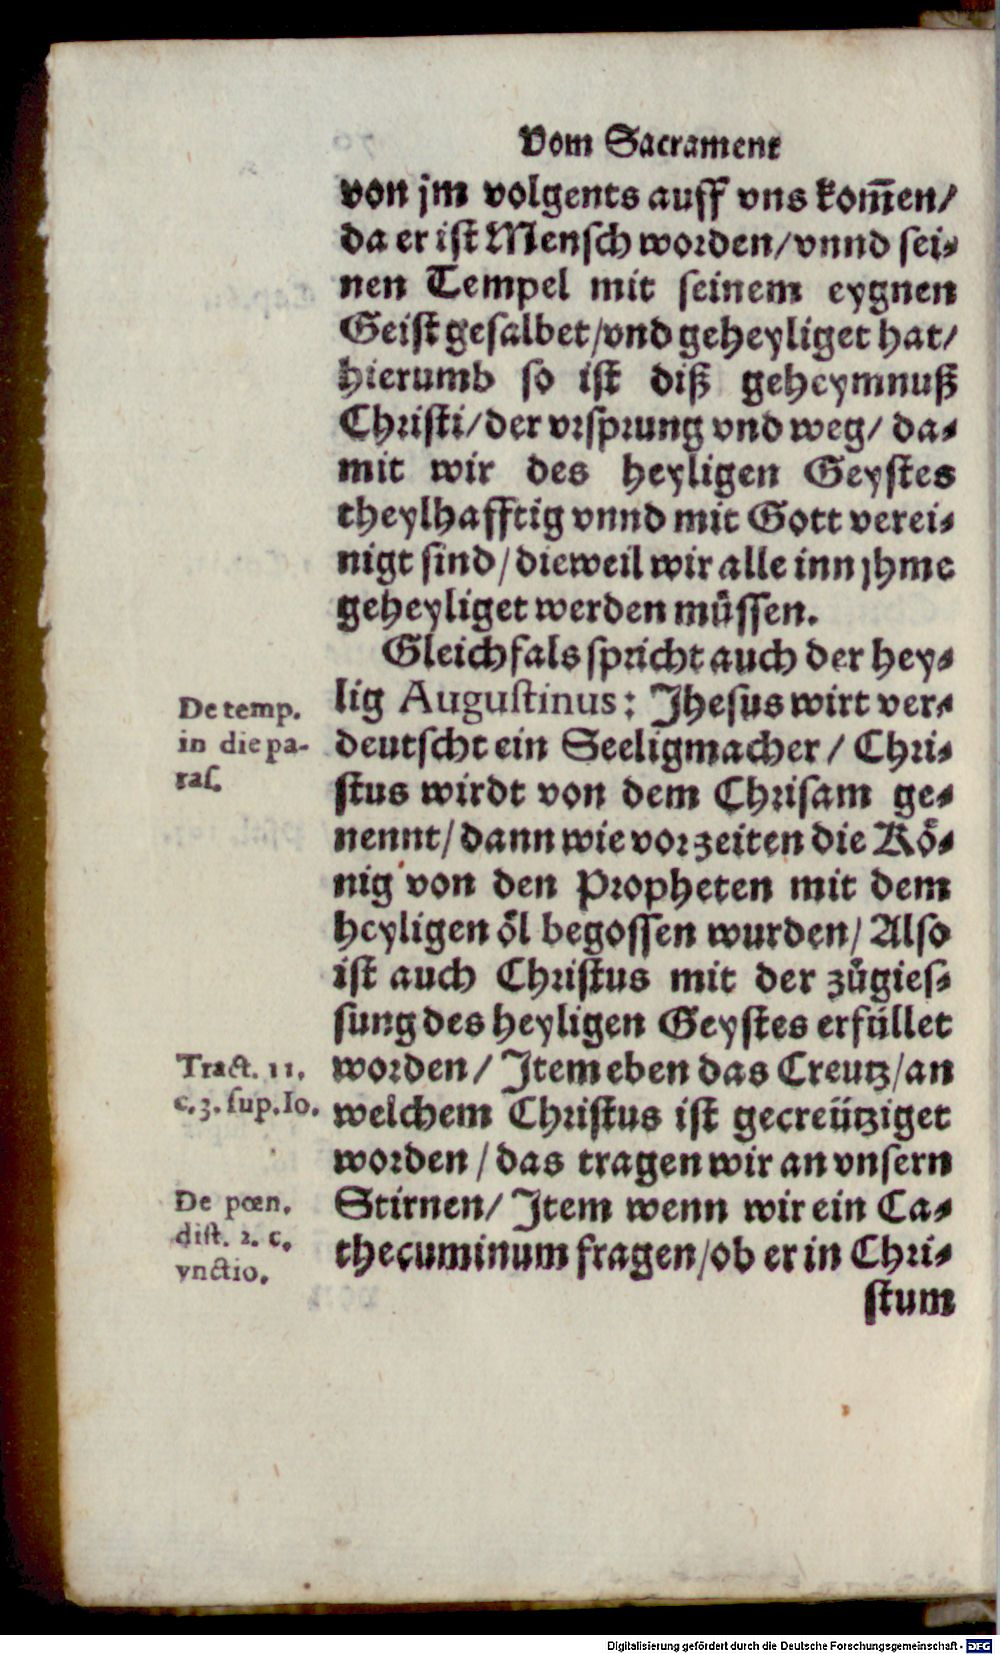 Vom Sacrament
von jm volgents auff vns kom̄en/
da er ist Mensch worden/vnnd sei-
nen Tempel mit seinem eygnen
Geist gesalbet/vnd geheyliget hat/
hierumb so ist diß geheymnuß
Christi/der vrsprung vnd weg/ da-
mit wir des heyligen Geystes
theylhafftig vnnd mit Gott verei-
nigt sind/dieweil wir alle inn jhme
geheyliget werden müssen.
Gleichfals spricht auch der hey-
lig Augustinus: Jhesus wirt ver-
deutscht ein Seeligmacher/ Chri-
stus wirdt von dem Chrisam ge-
nennt/dann wie vorzeiten die Kö-
nig von den Propheten mit dem
heyligen öl begossen wurden/ Also
ist auch Christus mit der zůgies-
sung des heyligen Geystes erfüllet
worden/ Jtem eben das Creutz/an
welchem Christus ist gecreütziget
worden/das tragen wir an vnsern
Stirnen/ Jtem wenn wir ein Ca-
thecuminum fragen/ob er in Chri-
stum
De temp.
in die pa-
ras.
Tract. 11.
c.3. sup.Io.
De pœn.
dist. 2. c.
vnctio.
Digitalisierung gefördert durch die Deutsche Forschungsgemeinschaft - DFG